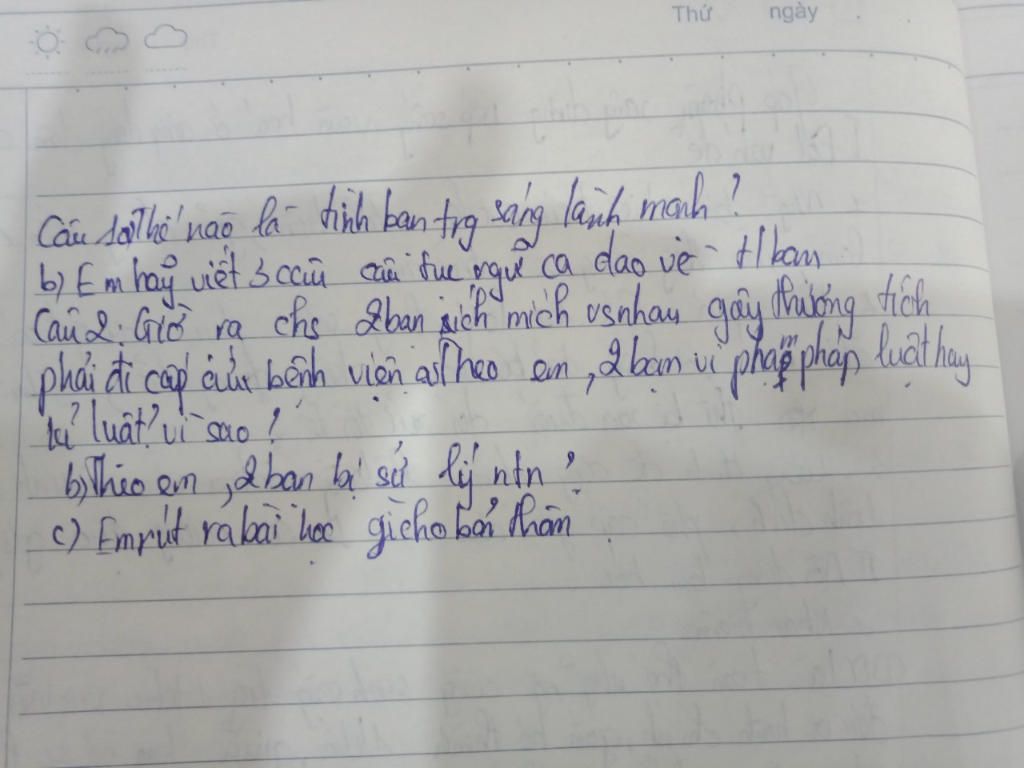 Thứ ngày
Câu 1a) Thế nào là tình bạn trg sáng lành mạnh?
b) Em hãy viết 3 câu tục ngữ ca dao về t/bạn
Câu 2: Giờ ra chs 2 bạn xích mích vs nhau gây thương tích
phải đi cấp cứu bệnh viện a) Theo em, 2 bạn vi phạm pháp luật hay
kỉ luật? vì sao?
b) Theo em, 2 bạn bị sử lý ntn?
c) Em rút ra bài học gì cho bản thân